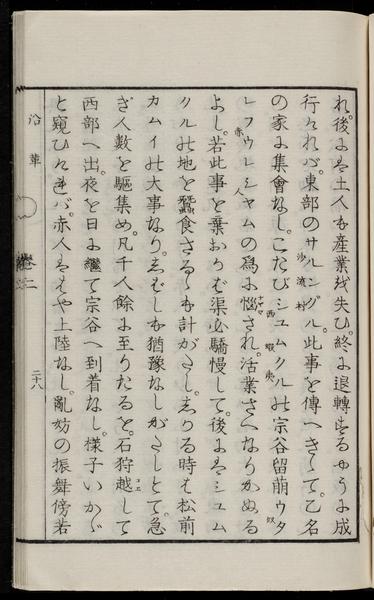 れ。後にハ土人も産業を失ひ。終に退轉するやうに成
行くれバ。東部のサルングル。此事を傳へきゝて。乙名
沙流村
の家に集會なし。こたびシュムクルの宗谷留萠ウタ
西蝦夷
奴
レフウレシャムの爲に惱され。活業さへなりかぬる
赤人
ナヤマ
よし。若此事を棄おかば渠必驕慢して。後にハシュム
クルの地を蠶食さるゝも計がたし。さある時は松前
カムイの大事なり。さむしも猶豫なしがたしとて。急
ぎ人數を驅集め。凡千人餘に至りたるを。石狩越して
コエ
西部へ出。夜を日に繼て宗谷へ到着なし。樣子いかゞ
と窺ひくれバ。赤人はゝや上陸なし。亂妨の振舞傍若
沿革
卷二
二十八